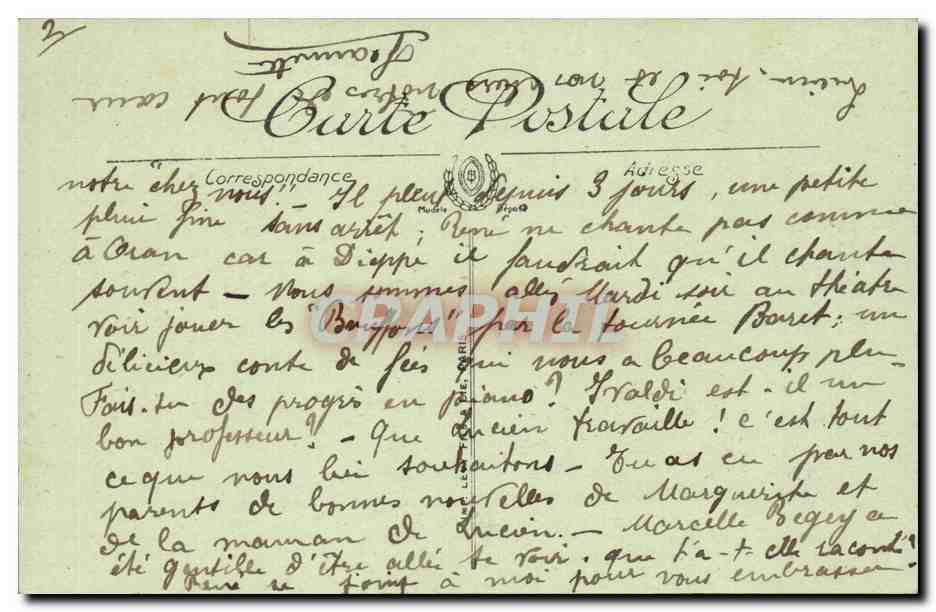 3
Carte Postale
Correspondance
Adresse
notre "chez nous". - Il pleut depuis 3 jours, une petite
pluie fine sans arrêt ; René ne chante pas comme
à Oran car à Dieppe il faudrait qu'il chante
souvent - Nous sommes allés Mardi soir au théâtre
voir jouer les "Bouffons" par la tournée Baret ; un
délicieux conte de fées qui nous a beaucoup plu
Fais-tu des progrès en piano ? Ivaldi est-il un
bon professeur ? - Que Lucien travaille ! c'est tout
ce que nous lui souhaitons - Tu as eu par nos
parents de bonnes nouvelles de Marguerite et
de la maman de Lucien. - Marcelle Begey a
été gentille d'être allée te voir. que t'a-t-elle raconté ?
René se joint à moi pour vous embrasser
Lucien, toi et nos chers nôtres de tout cœur
Jeannette
CRAPHIL